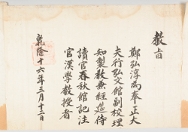 敎旨
鄭弘淳爲奉正大
夫行弘文館副校理
知製敎兼經筵侍
讀官春秋館記注
官漢學敎授者
乾隆十六年三月十二日